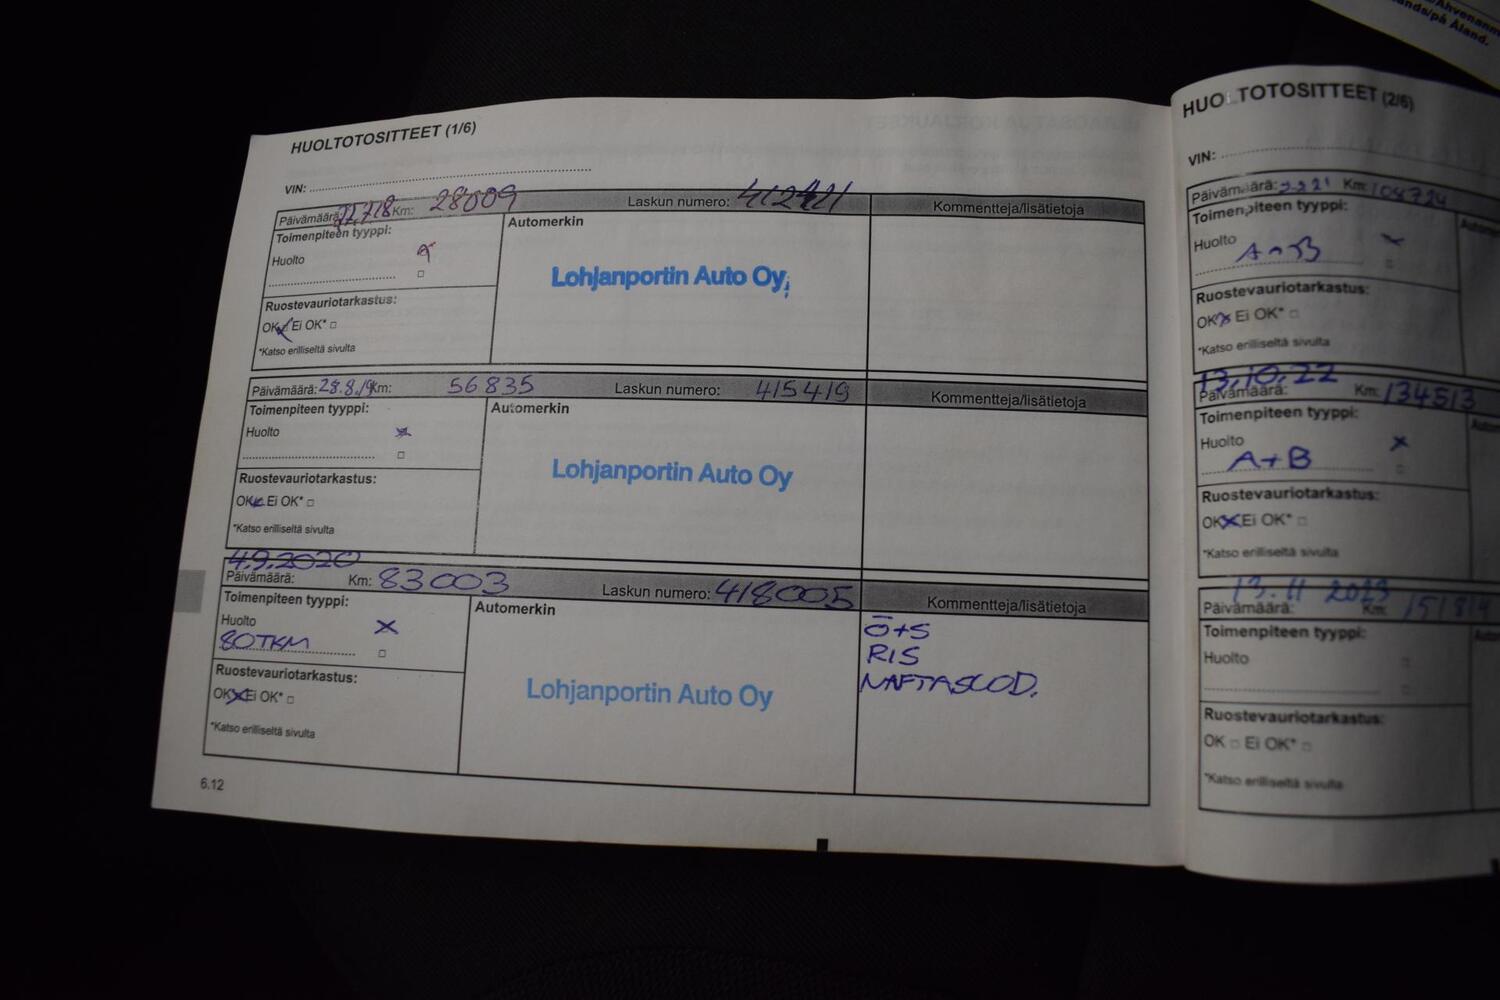 Ahvenanm
anda/på Åland.
HUOLTOTOSITTEET (1/6)
VIN:
Päivämäärä: Km: 28009 Laskun numero: Kommentteja/lisätietoja
Toimenpiteen tyyppi:
Huolto
Automerkin
Lohjanportin Auto Oy
Ruostevauriotarkastus:
OK Ei OK*
*Katso erilliseltä sivulta
Päivämäärä: 28.8.19 Km: 56835 Laskun numero: 415419 Kommentteja/lisätietoja
Toimenpiteen tyyppi:
Huolto
Automerkin
Lohjanportin Auto Oy
Ruostevauriotarkastus:
OK Ei OK*
*Katso erilliseltä sivulta
4.9.2020
Päivämäärä: Km: 83003 Laskun numero: 418005 Kommentteja/lisätietoja
Toimenpiteen tyyppi:
Huolto
80TKM
Automerkin
Lohjanportin Auto Oy
Ö+S
RIS
NAFTASUOD.
Ruostevauriotarkastus:
OK Ei OK*
*Katso erilliseltä sivulta
6.12
HUOLTOTOSITTEET (2/6)
VIN:
Päivämäärä: Km: 104724
Toimenpiteen tyyppi:
Huolto
Ruostevauriotarkastus:
OK Ei OK*
*Katso erilliseltä sivulta
13.10.22
Päivämäärä: Km: 134513
Toimenpiteen tyyppi:
Huolto
A+B
Ruostevauriotarkastus:
OK Ei OK*
*Katso erilliseltä sivulta
13.11 2023
Päivämäärä: Km:
Toimenpiteen tyyppi:
Huolto
Ruostevauriotarkastus:
OK Ei OK*
*Katso erilliseltä sivulta